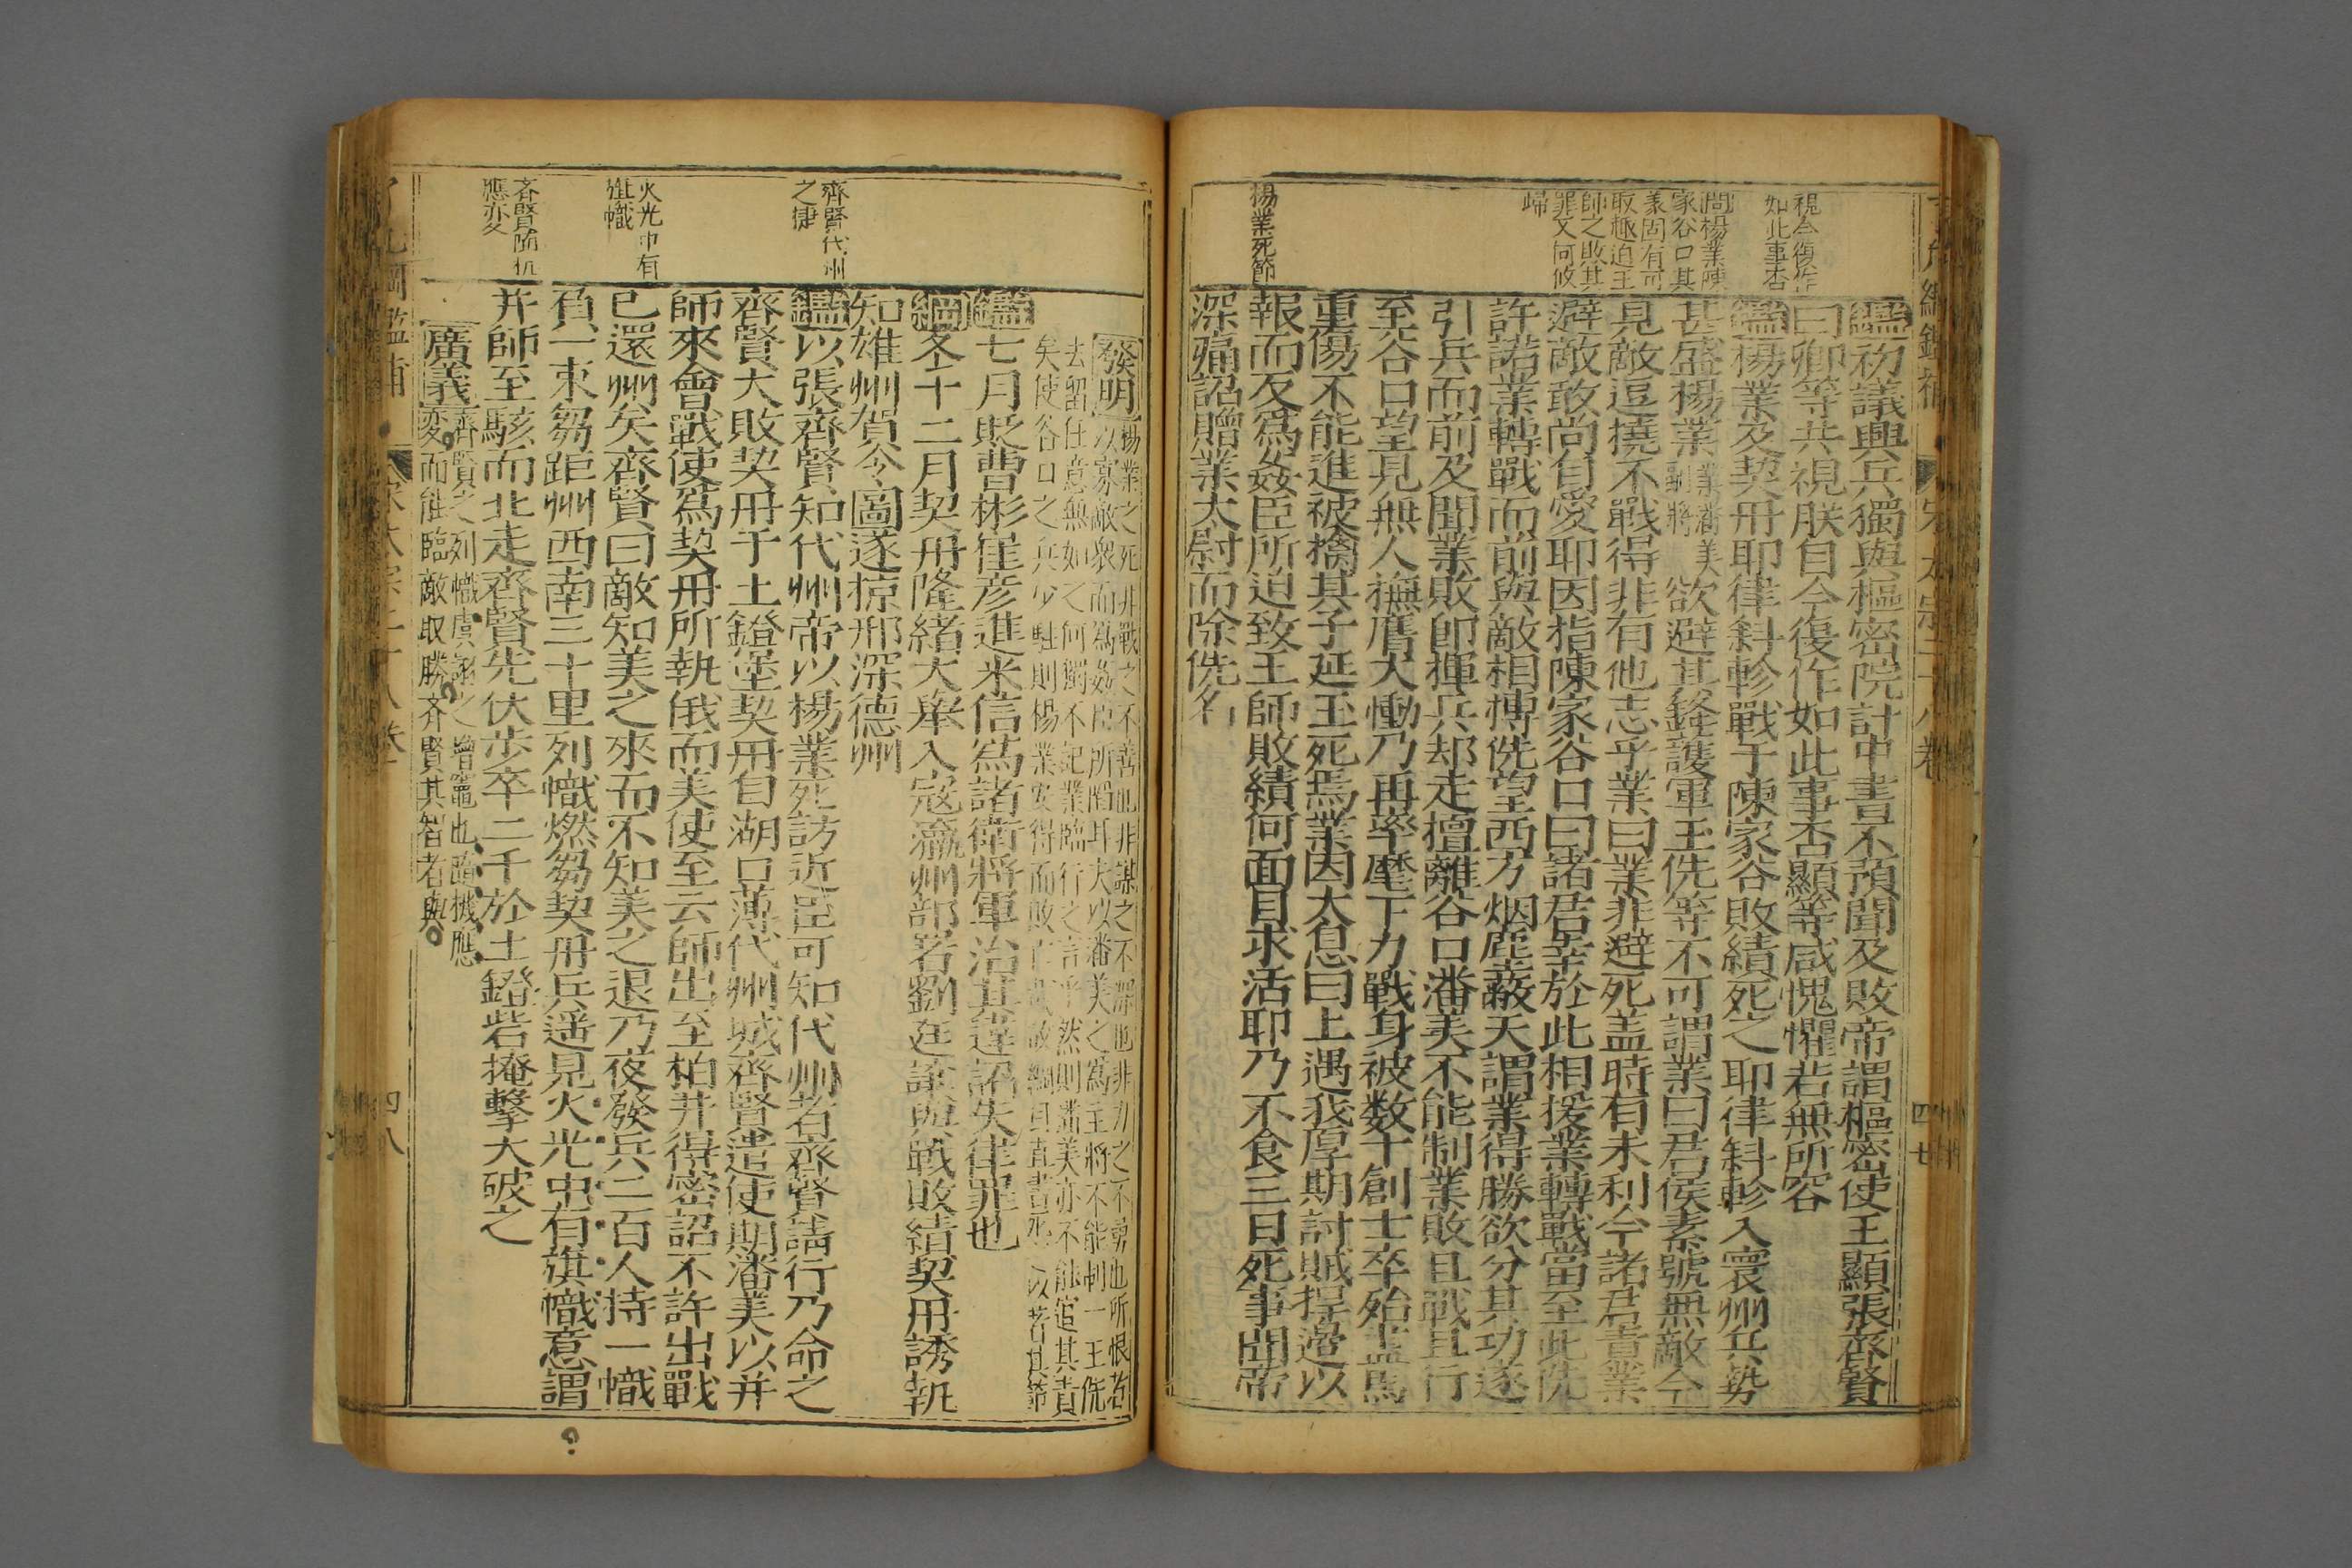 視今復作
如此事否
問楊業陳
家谷口其
義固有可
取趣迫王
帥之敗其
罪又何攸
歸
楊業死節
鑑初議興兵獨與樞密院計中書不預聞及敗帝謂樞密使王顯張齊賢
曰卿等共視朕自今復作如此事否顯等咸愧懼若無所容
鑑楊業及契丹耶律斜軫戰于陳家谷敗績死之耶律斜軫入寰州兵勢
甚盛楊業業潘美副將欲避其鋒護軍王侁等不可謂業曰君侯素號無敵今
見敵逗撓不戰得非有他志乎業曰業非避死盖時有未利今諸君責業
避敵敢尚自愛耶因指陳家谷口曰諸君幸於此相援業轉戰當至此侁
許諾業轉戰而前與敵相搏侁望西方烟塵蔽天謂業得勝欲分其功遂
引兵而前及聞業敗即揮兵却走擅離谷口潘美不能制業敗且戰且行
至谷口望見無人撫膺大慟乃再率麾下力戰身被数十創士卒殆盡馬
重傷不能進被擒其子延玉死焉業因太息曰上遇我厚期討賊捍邊以
報而反爲姦臣所迫致王師敗績何面目求活耶乃不食三日死事聞帝
深痛詔贈業太尉而除侁名
齊賢代州
之捷
火光中有
旌幟
齊賢隨机
應変
發明楊業之死非戰之不善也非謀之不深也非力之不勇也所恨者
以寡敵衆而爲姦臣所陷耳夫以潘美之爲主將不能制一王侁
去留任意無如之何獨不記業臨行之言乎然則潘美亦不能逭其責
矣使谷口之兵少駐則楊業安得而敗亡哉故綱目直書死之以著其節
鑑七月貶曹彬崔彦進米信爲諸衛將軍治其違詔失律罪也
綱冬十二月契丹隆緒大舉入寇瀛州部署劉廷讓與戰敗績契丹誘執
知雄州賀令圖遂掠邢深德州
鑑以張齊賢知代州帝以楊業死訪近臣可知代州者齊賢請行乃命之
齊賢大敗契丹于土鐙堡契丹自湖口薄代州城齊賢遣使期潘美以并
師來會戰使爲契丹所執俄而美使至云師出至柏井得密詔不許出戰
已還州矣齊賢曰敵知美之來而不知美之退乃夜發兵二百人持一幟
負一束芻距州西南三十里列幟燃芻契丹兵遥見火光中有旗幟意謂
并師至駭而北走齊賢先伏步卒二千於土鐙砦掩擊大破之
廣義齊賢之列幟虞詡之增竈也隨機應
変而能臨敵取勝齊賢其智者與